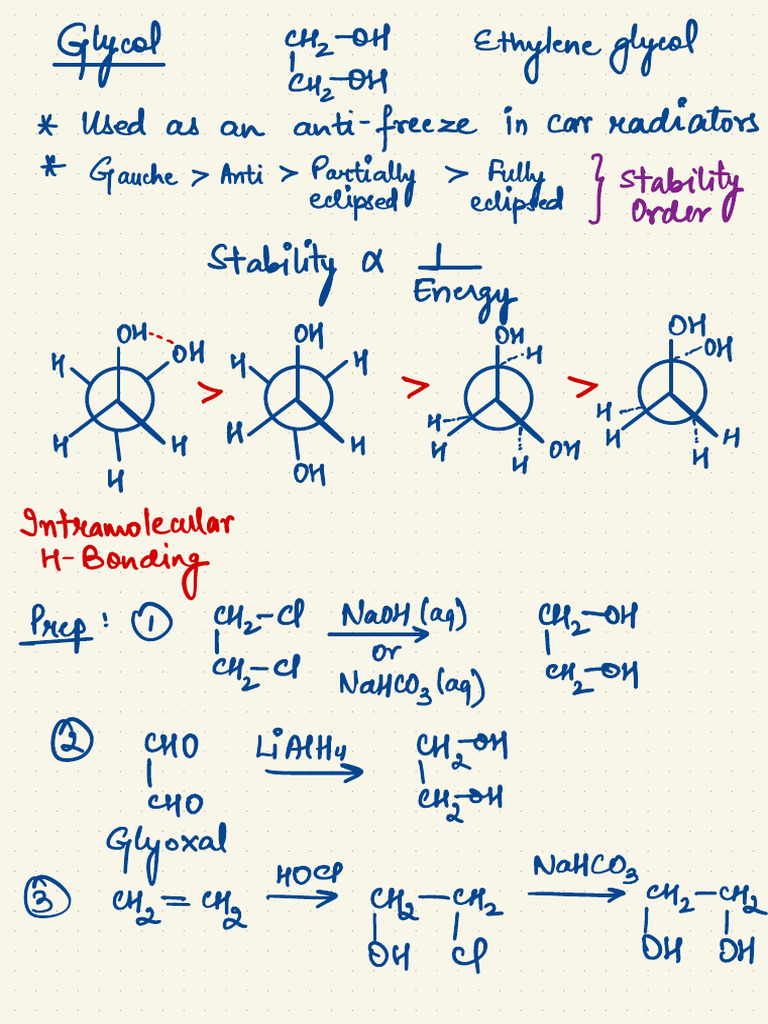 Glycol CH2-OH Ethylene glycol
CH2-OH
* Used as an anti-freeze in car radiators
* Gauche > Anti > Partially eclipsed > Fully eclipsed } Stability Order
Stability ∝ 1/Energy
OH OH H H H H H > OH H H H H OH > OH H H H H OH > OH OH H H H H
Intramolecular
H-Bonding
Prep: ① CH2-Cl NaOH (aq) CH2-OH
or
CH2-Cl NaHCO3 (aq) CH2-OH
② CHO LiAlH4 CH2-OH
CHO CH2-OH
Glyoxal
③ CH2=CH2 HOCl CH2-CH2 NaHCO3 CH2-CH2
OH Cl OH OH